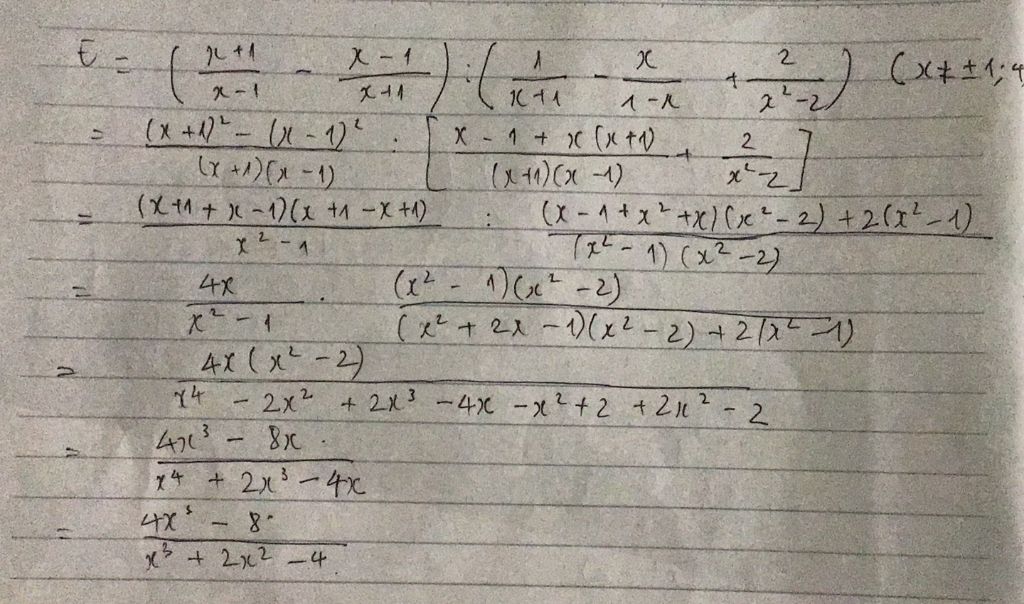 E = ( (x+1)/(x-1) - (x-1)/(x+1) ) : ( 1/(x+1) - x/(1-x) + 2/(x²-2) ) (x ≠ ±1; 4
= ((x+1)² - (x-1)²)/((x+1)(x-1)) : [ (x-1+x(x+1))/((x+1)(x-1)) + 2/(x²-2) ]
= ((x+1+x-1)(x+1-x+1))/(x²-1) : ((x-1+x²+x)(x²-2)+2(x²-1))/((x²-1)(x²-2))
= 4x/(x²-1) . ((x²-1)(x²-2))/((x²+2x-1)(x²-2)+2(x²-1))
= (4x(x²-2))/(x⁴-2x²+2x³-4x-x²+2+2x²-2)
= (4x³-8x)/(x⁴+2x³-4x)
= (4x³-8)/(x³+2x²-4)